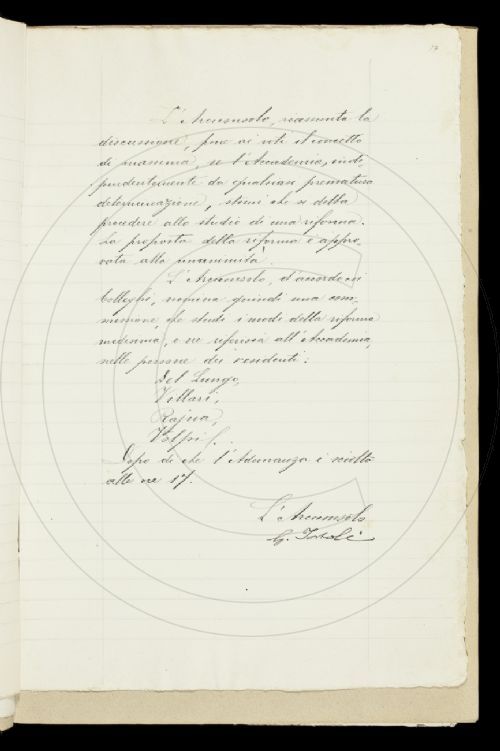 17
L'Arciconsolo, riassunta la
discussione, pone ai voti il concetto
di massima, se l'Accademia, indi-
pendentemente da qualsiasi prematura
determinazione, stimi che si debba
procedere allo studio di una riforma.
La proposta della riforma è appro-
vata alla unanimità.
L'Arciconsolo, d'accordo coi
Colleghi, nomina quindi una com-
missione, che studi i modi della riforma
medesima, e ne riferisca all'Accademia,
nelle persone dei residenti:
Del Lungo,
Villari,
Rajna,
Volpi.
Dopo di che l'Adunanza è sciolta
alle ore 17.
L'Arciconsolo
G. Tortoli